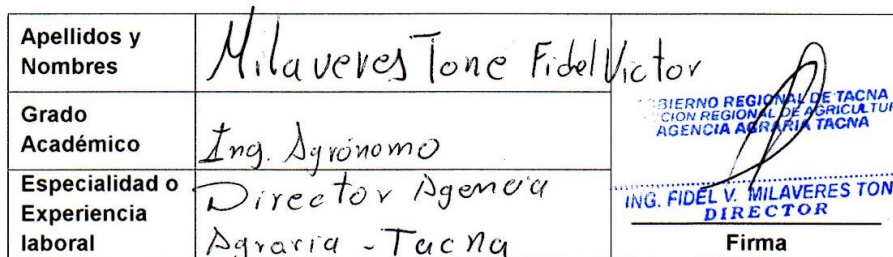 Apellidos y
Nombres
Milaveres Tone Fidel Victor
Grado
Académico
Ing. Agrónomo
Especialidad o
Experiencia
laboral
Director Agencia
Agraria - Tacna
BIERNO REGIONAL DE TACNA
CION REGIONAL DE AGRICULTUR
AGENCIA AGRARIA TACNA
ING. FIDEL V. MILAVERES TON
DIRECTOR
Firma